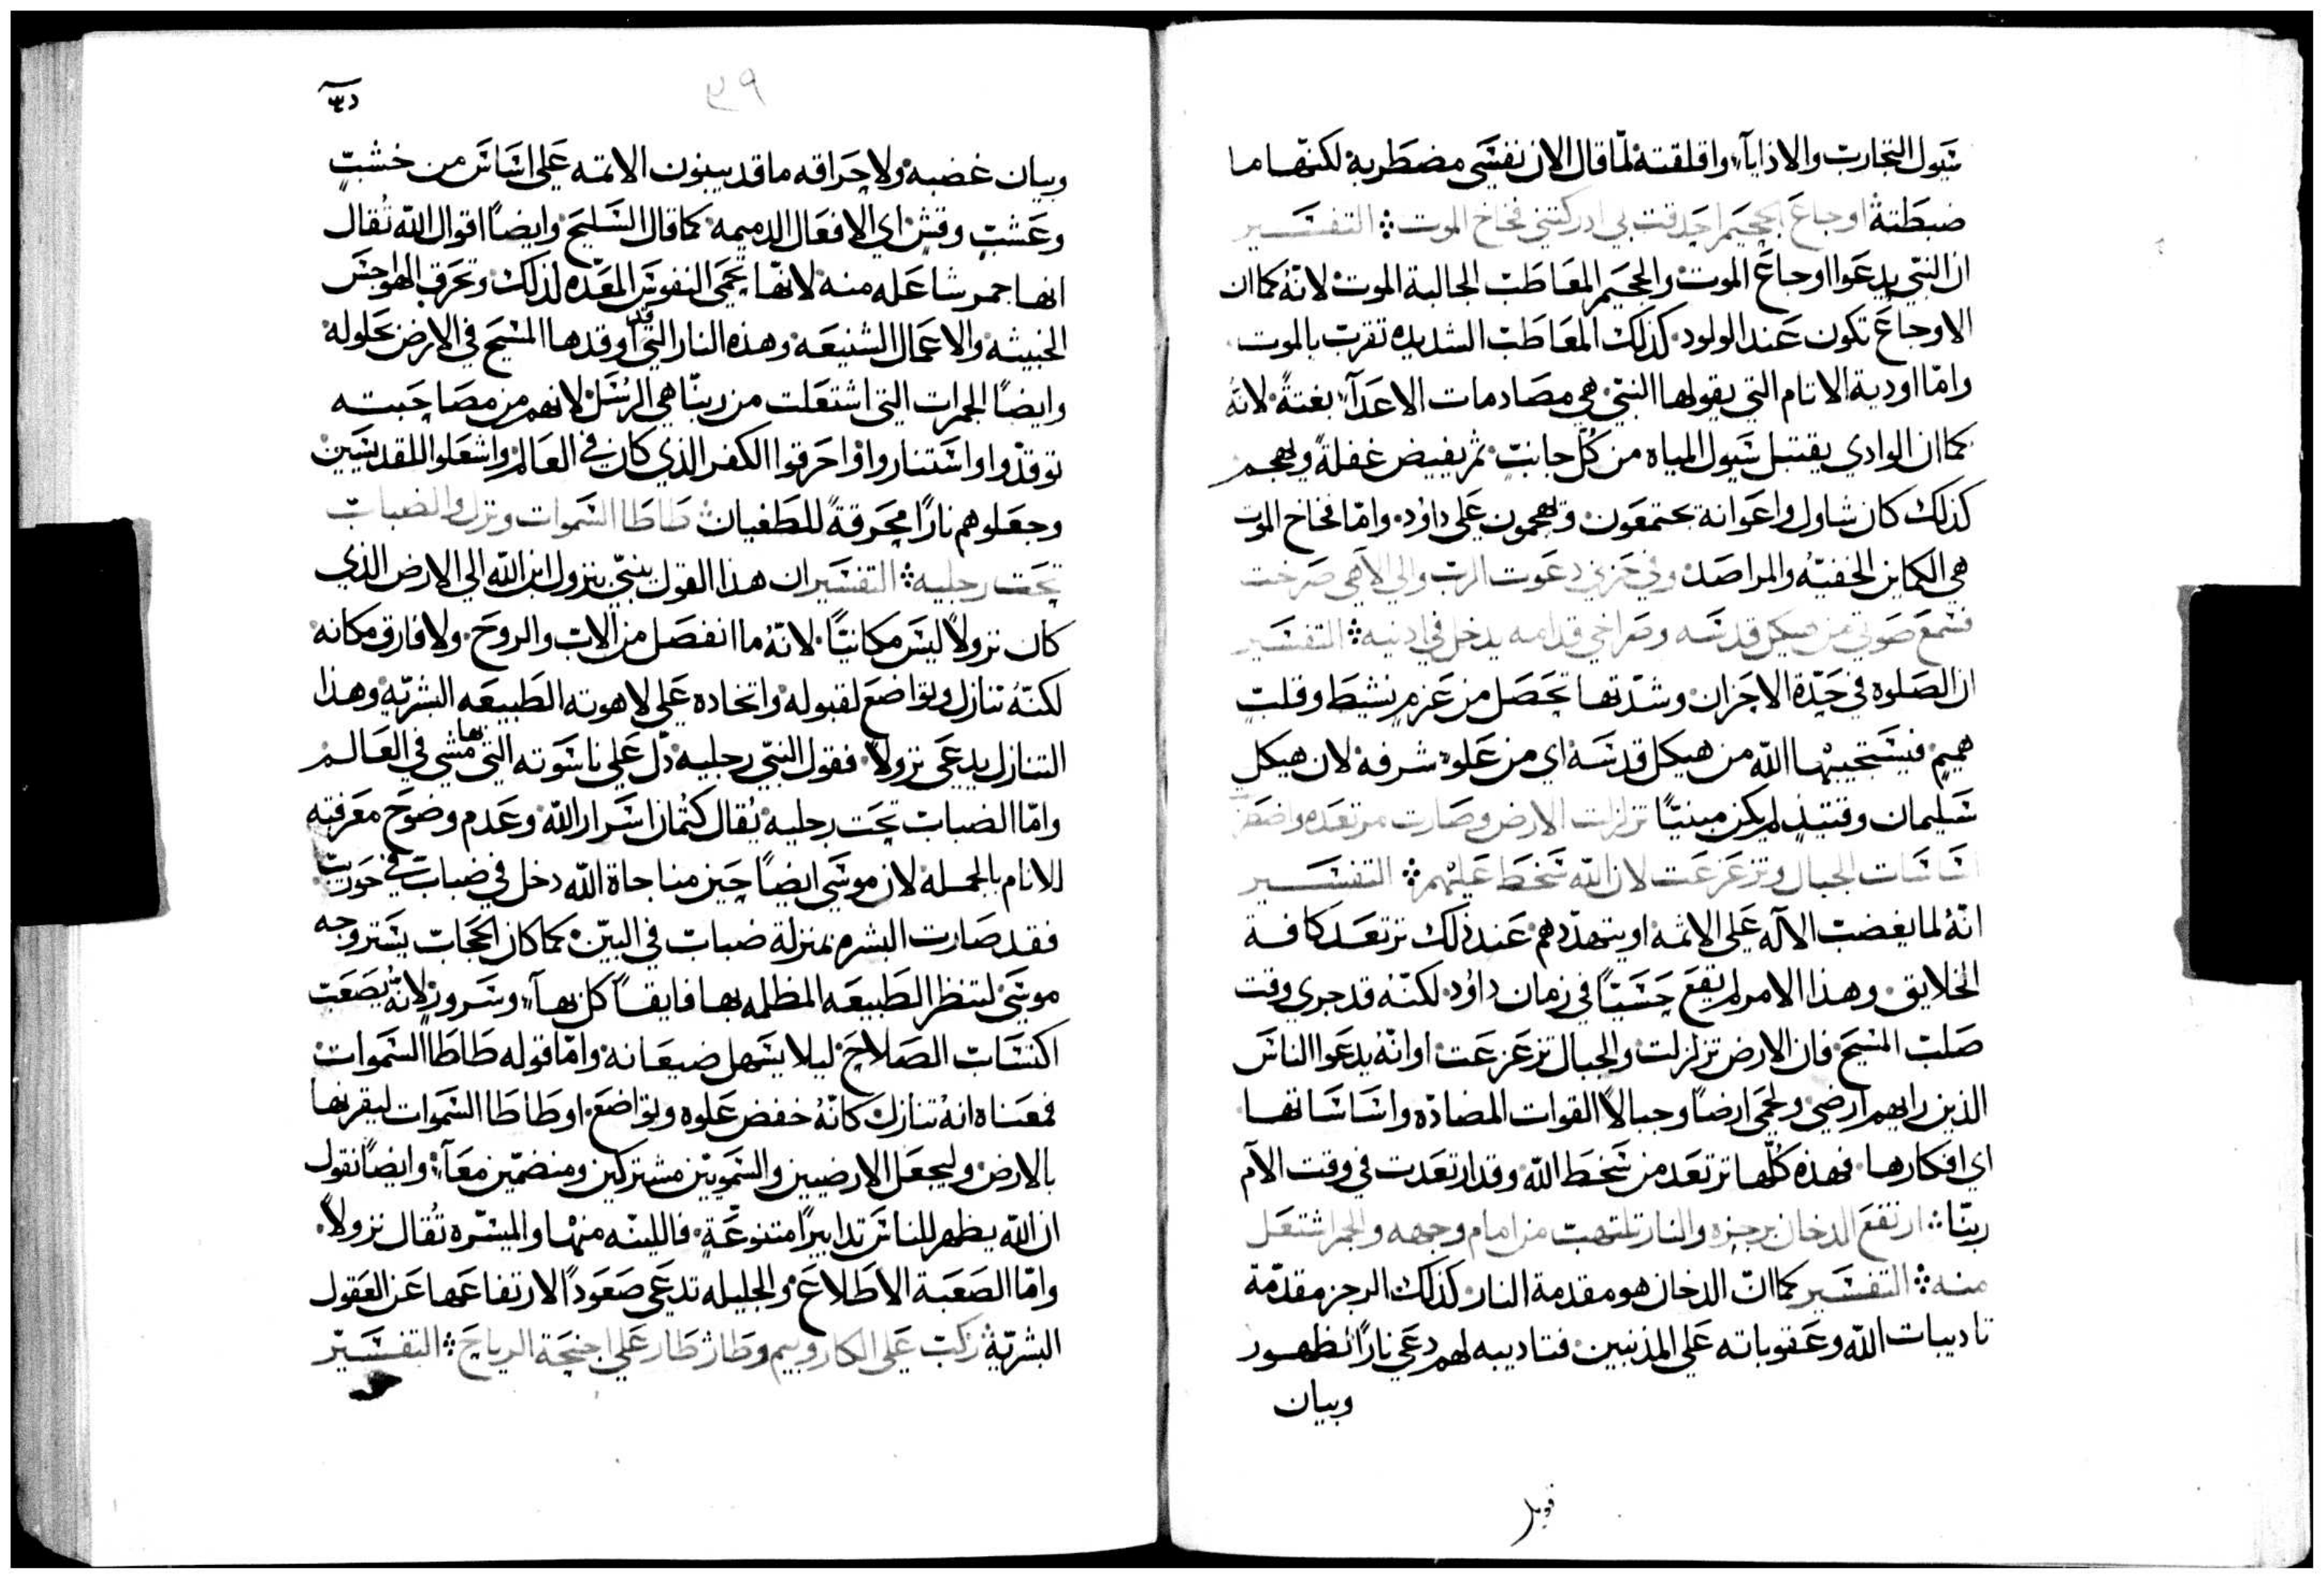 سيول التجارب والاذايآ، واقلقته لما قال الان نفسي مضطربة لكنها ما
ضبطته اوجاع الجحيم احدقت بي ادركتني فخاخ الموت ۞ التفسير
ان النبي يدعوا اوجاع الموت والجحيم المعاطب الجالبة الموت لانه كما ان
الاوجاع تكون عند الولود كذلك المعاطب الشديده تقرب بالموت
وامّا اودية الاثام التي يقولها النبي هي مصادمات الاعدآ، بغتةً لانهُ
كما ان الوادي يقتبل سيول المياه من كل جانب ثم يفيض غفلةً ويهجم
كذلك كان شاول واعوانه يجتمعون ويهجمون على داوُد وامّا فخاخ الموت
هي الكماين الخفيّه والمراصد وفي حزني دعوت الرب والى الاهي صرخت
فسمع صوتي من هيكل قدسه وصراخي قدامه يدخل في ادنيه ۞ التفسير
ان الصلوه في حدّة الاحزان وشدتها تحصل من عزمٍ نشيط وقلبٍ
هميم فيستجيبها الله من هيكل قدسه اي من علو شرفه لان هيكل
سليمان وقتيذٍ لم يكن مبنيّاً تزلزلت الارض وصارت مرتعده واضطربت
اساسات الجبال وتزعزعت لان الله سخط عليهم ۞ التفسير
انّهُ لما يغضب الآله على الاثمه او يتهددهم عند ذلك ترتعد كافة
الخلايق وهذا الامر لم يقع حسيّاً في زمان داوُد لكنّه قد جري وقت
صلب المسيح فان الارض تزلزلت والجبال تزعزعت او انّه يدعوا الناس
الذين رايهم ارضي ولحمي ارضاً وجبالاً القوات المضادّه واساساتها
اي افكارها فهذه كلّها ترتعد من سخط الله وقد ارتعدت في وقت الآم
ربنّا ۞ ارتفع الدخان برجزه والنار تلتهب من امام وجهه والجمر اشتعل
منه ۞ التفسير كما انّ الدخان هو مقدمة النار كذلك الرجز مقدّمة
تاديبات الله وعقوباته على المذنبين فتاديبه لهم دعي ناراً لظهور
وبيان
وبيان غضبه ولاحراقه ما قد يبنون الاثمه على اساس من خشبٍ
وعشبٍ وقشٍ اي الافعال الدميمه كما قال السليح وايضاً اقوال الله تُقال
انها جمر شاعله منه لانّها تحمي النفوس المعّده لذلك وتحرق الهواجس
الخبيثه والاعمال الشنيعه وهذه النار التي قد اوقدها المسيح في الارض بحلوله
وايضاً الجمرات التي اشتعلت من ربنّا هي الرسل لانهم من مصاحبته
توقدّوا واستناروا واحرقوا الكفر الذي كان في العالم واشعلوا للقديسين
وجعلوهم ناراً محرقةً للطغيان طاطا السموات ونزل والضباب
تحت رجليه ۞ التفسير ان هذا القول ينبّي بنزول ابن الله الى الارض الذي
كان نزولاً ليس مكانيّاً لانّهُ ما انفصل من الاب والروح ولا فارق مكانه
لكنّهُ تنازل وتواضع لقبوله واتحاده على لاهوته الطبيعه البشريّه وهذا
التنازل يدعى نزولاً فقول النبي رجليه دّل على ناسوته التي بها مشي في العالم
وامّا الضباب تحت رجليه يُقال كتمان اسرار الله وعدم وضوح معرفته
للانام بالجمله لان موسي ايضاً حين مناجاة الله دخل في ضباب في حوريب
فقد صارت البشره بمنزلة ضباب في البيّن كما كان الحجاب يستر وجه
موسي لتنظر الطبيعه المظلمه بها فايقاً كل بهآ، وسرور لانّه يصعب
اكتساب الصلاح ليلا يسهل ضيعانه وامّا قوله طاطا السموات
فمعناه انه تنازل كانّهُ خفض علوه وتواضع او طاطا السموات ليقربها
بالارض وليجعل الارضيين والسمويين مشتركين ومنضمّين معآً وايضاً نقول
ان الله يظهر للناس تدابيراً متنوعّةٍ فاللينه منها والميسّره تُقال نزولاً
وامّا الصعبة الاطلاع والجليله تدعى صعوداً لارتفاعها عن العقول
البشريّه ركب على الكاروبيم وطار طار على اجنحة الرياح ۞ التفسير